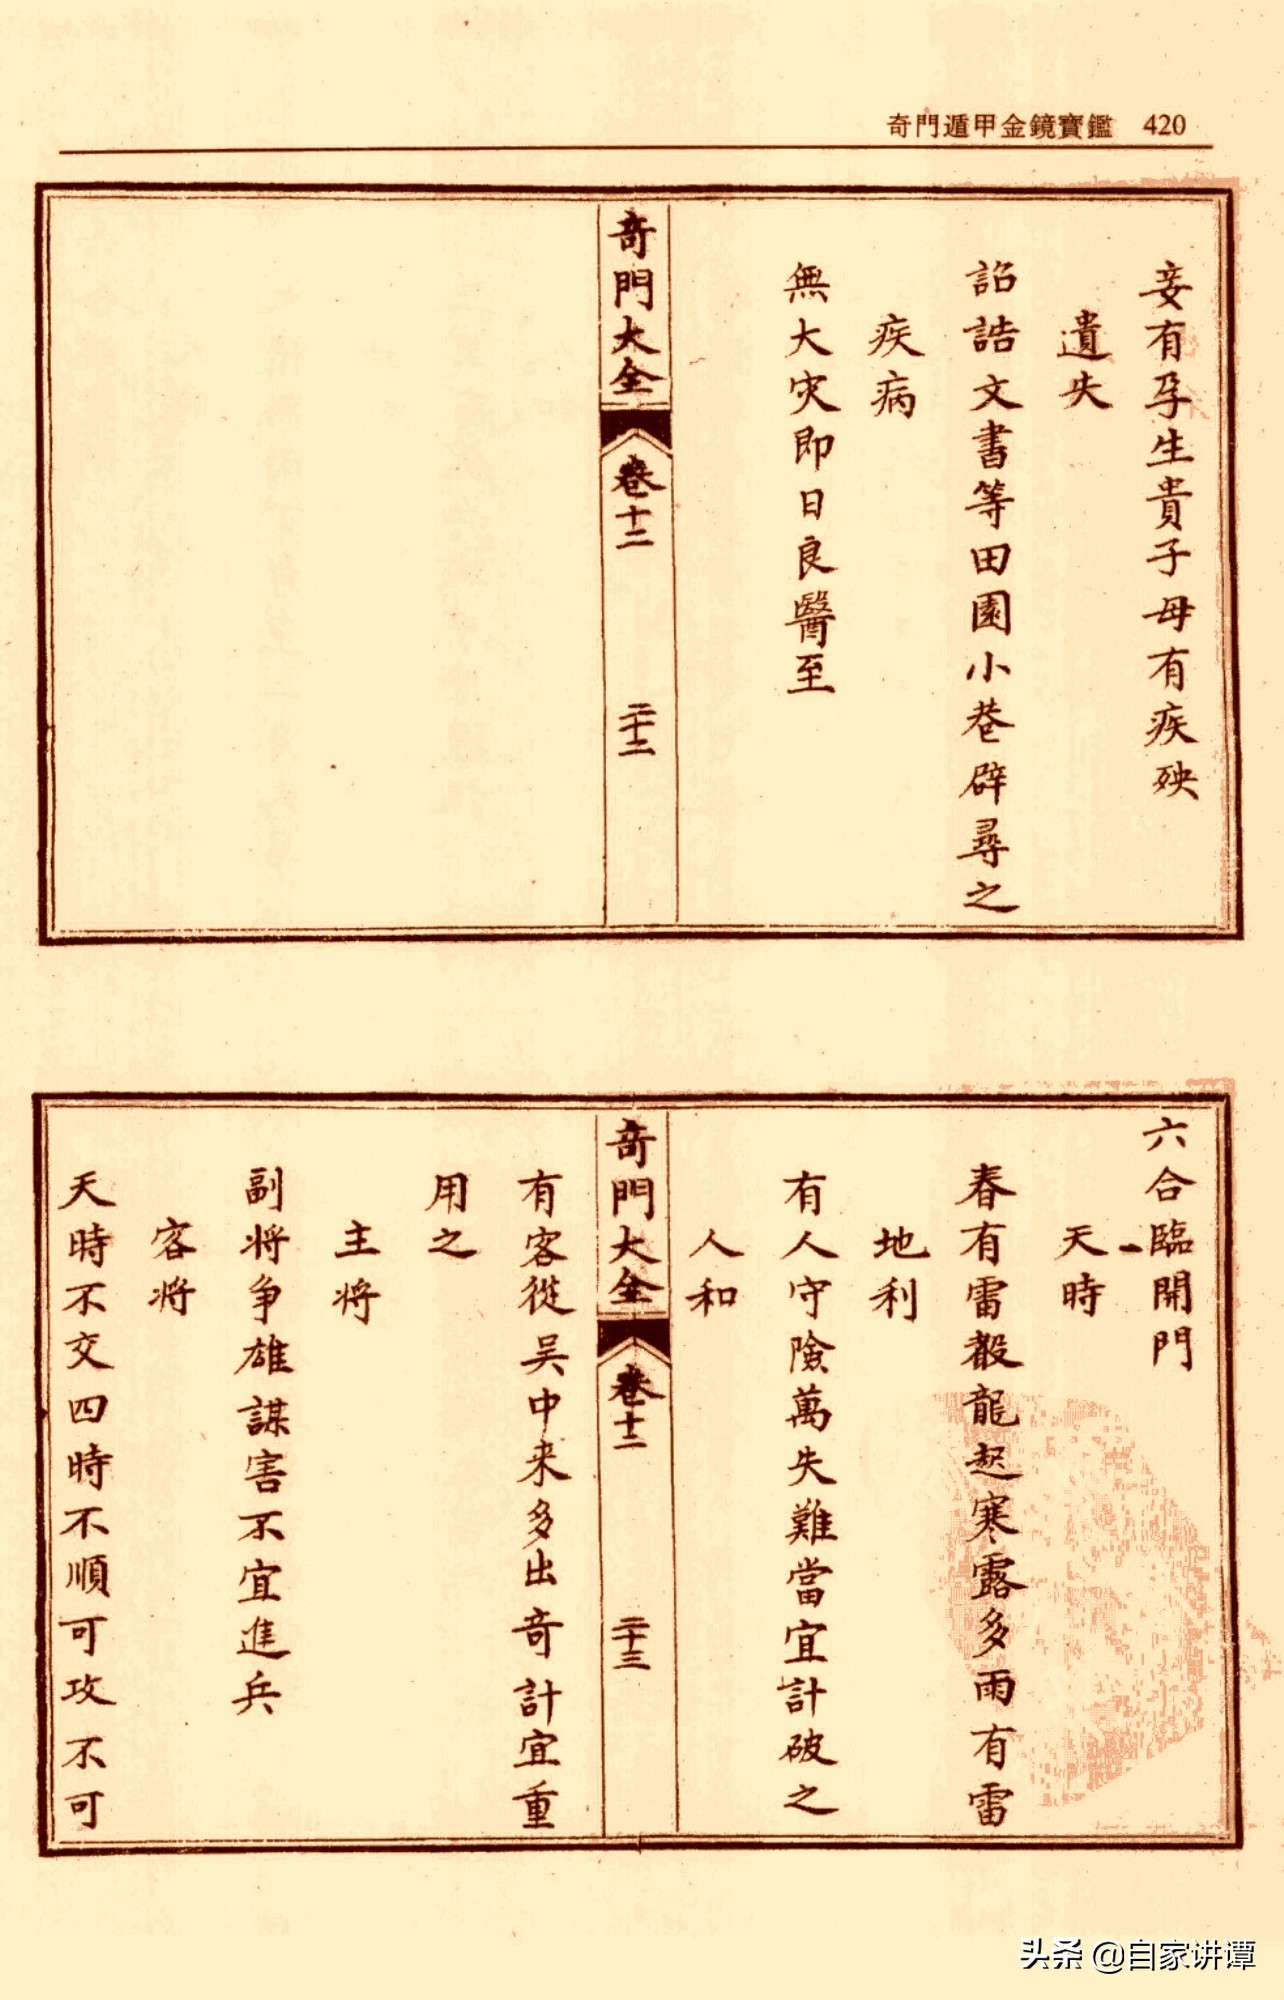 奇門遁甲金鏡寶鑑 420
妾有孕生貴子母有疾殃
遺失
詔誥文書等田園小巷辟尋之
疾病
無大灾即日良醫至
奇門大全 卷十二 二十二
六合臨開門
天時
春有雷轂龍起寒露多雨有雷
地利
有人守險萬失難當宜計破之
人和
奇門大全 卷十二 二十三
有客從吴中来多出奇計宜重
用之
主将
副将争雄謀害不宜進兵
客将
天時不交四時不順可攻不可
头条 @自家讲谭